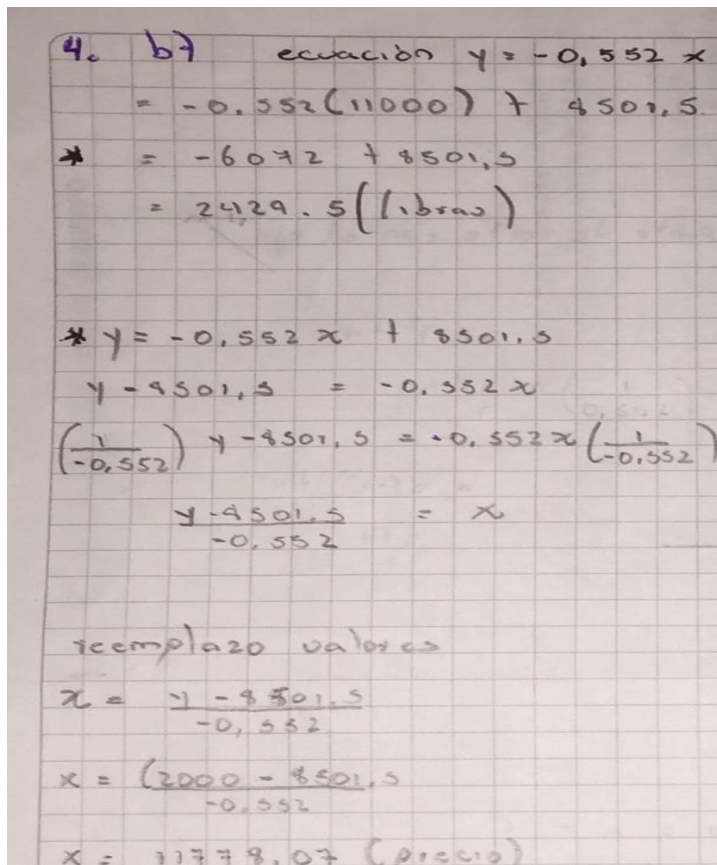 4. b7 ecuación y = -0,552 x
= -0.552(11000) + 8501,5.
* = -6072 + 8501,5
= 2429.5 (libras)
* y = -0,552 x + 8501,5
y - 8501,5 = -0.552 x
(1/-0,552) y - 8501,5 = -0,552 x (1/-0,552)
y - 8501,5/-0,552 = x
reemplazo valores
x = y - 8501,5/-0,552
x = (2000 - 8501,5/-0,552
x = 11778,07 (precio)